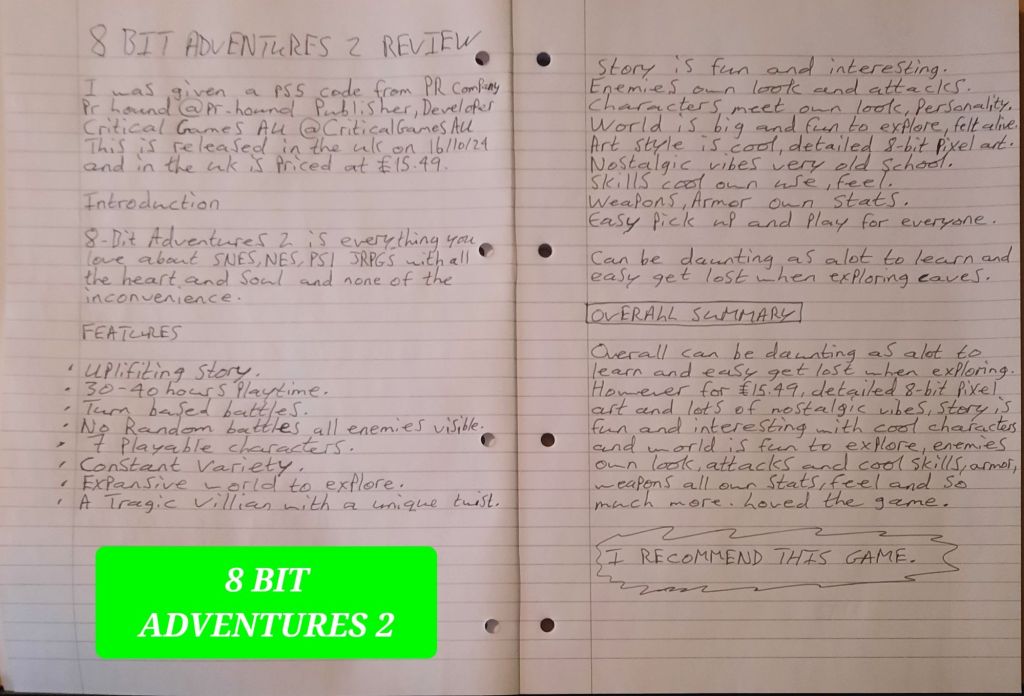 8 BIT ADVENTURES 2 REVIEW
I was given a PS5 code from PR company
Pr hound @Pr-hound Publisher, Developer
Critical Games AU @CriticalGamesAU
This is released in the uk on 16/10/24
and in the uk is priced at £15.49.
Introduction
8-Bit Adventures 2 is everything you
love about SNES, NES, PS1 JRPGs with all
the heart and soul and none of the
inconvenience.
FEATURES
• Uplifiting story.
• 30-40 hours Playtime.
• Turn based battles.
• No Random battles all enemies visible.
• 7 Playable characters.
• Constant Variety.
• Expansive world to explore.
• A Tragic Villian with a unique twist.
8 BIT
ADVENTURES 2
Story is fun and interesting.
Enemies own look and attacks.
Characters meet own look, Personality.
World is big and fun to explore, felt alive.
Art style is cool, detailed 8-bit Pixel art.
Nostalgic vibes very old school.
Skills cool own use, feel.
Weapons, Armor own stats.
Easy pick up and play for everyone.
Can be daunting as alot to learn and
easy get lost when exploring caves.
OVERALL SUMMARY
Overall can be daunting as alot to
learn and easy get lost when exploring.
However for £15.49, detailed 8-bit Pixel
art and lots of nostalgic vibes, story is
fun and interesting with cool characters
and world is fun to explore, enemies
own look, attacks and cool skills, armor,
weapons all own stats, feel and so
much more. Loved the game.
I RECOMMEND THIS GAME.